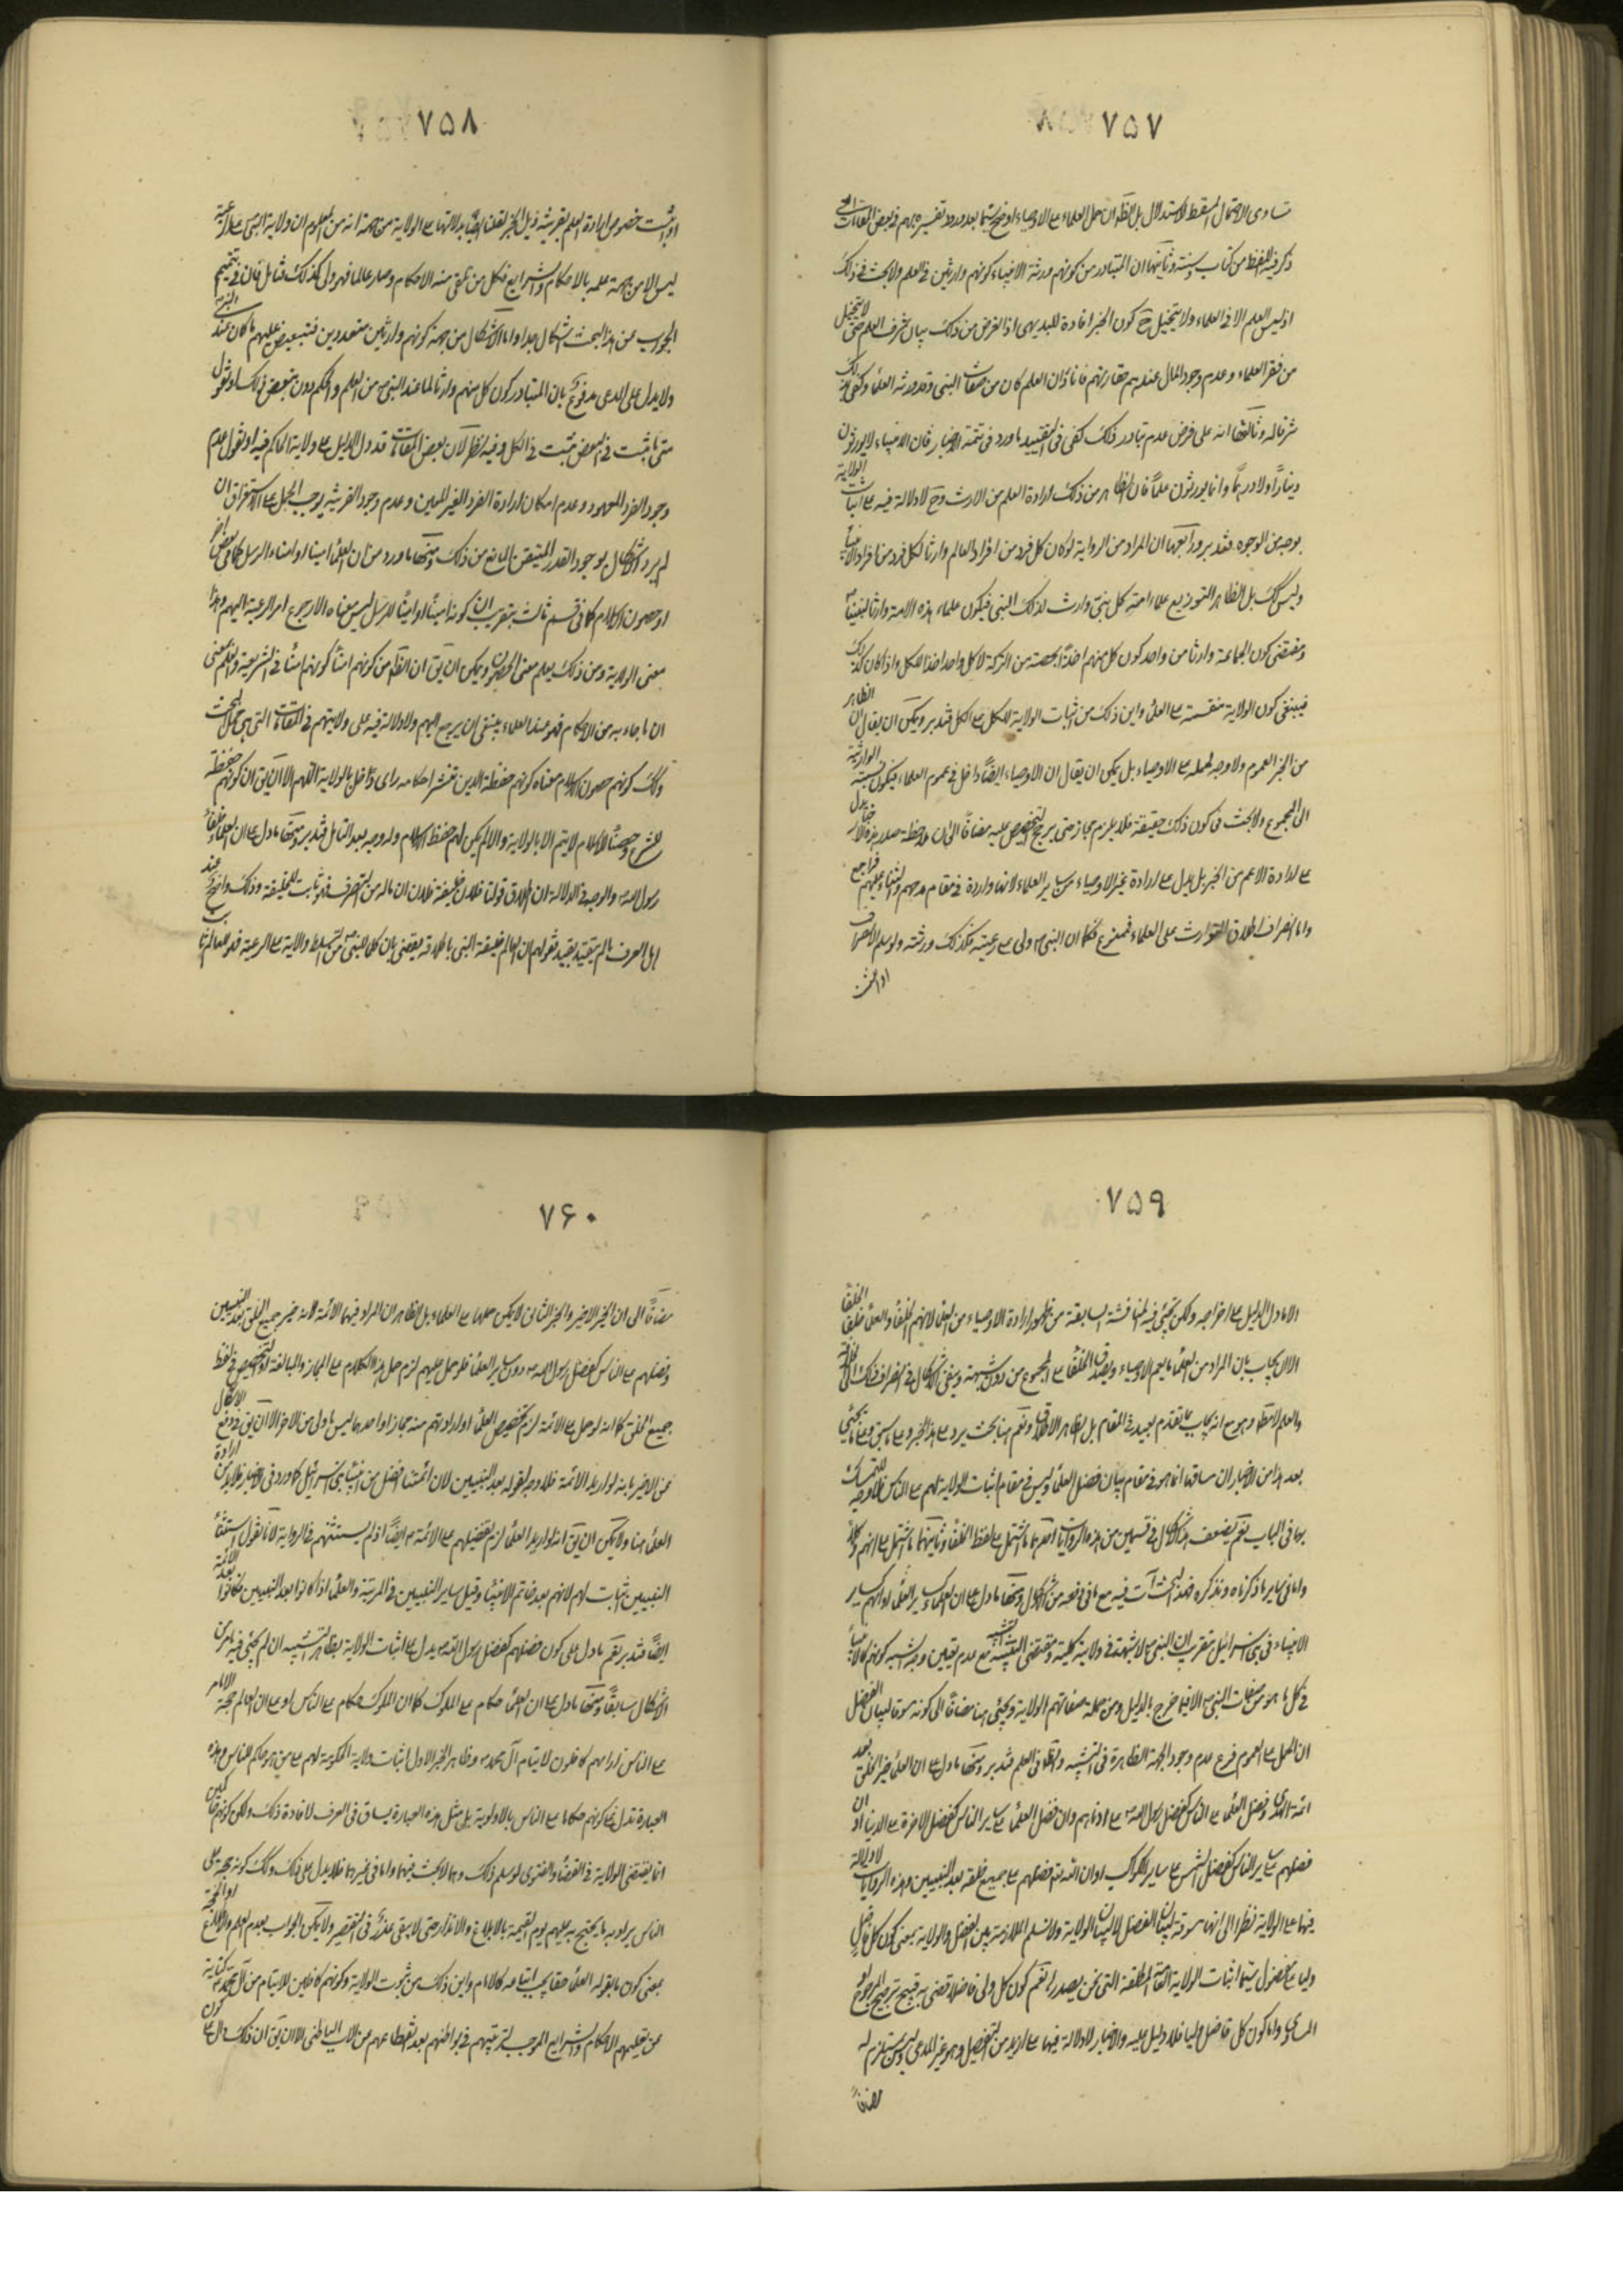 ٧٥٧
تساوى الاحتمال المسقط للاستدلال بل الظ ان حمل العلماء على الاوصياء اوضح سيّما بعد ورود تفسيره بهم فى بعض المقامات
ذكر فيه اللفظ من كتاب وسنة وثانيها ان المتبادر من كونهم ورثة الانبياء كونهم وارثين فى العلم ولا بحث فى ذلك
اذ ليس العلم الا فى العلماء ولا يتخيل ح كون الخبر افادة للبديهى اذ الغرض من ذلك بيان شرف العلم حتى لا يتخيل
من فقر العلماء وعدم وجود المال عندهم حقارتهم فانا ان العلم كان من صفات النبى وقد ورثه العلماء وكفى بذلك
شرفا له وثالثها انه على فرض عدم تبادر ذلك كفى فى التقييد ما ورد فى تتمة الاخبار فان الانبياء لا يورثون
دينارًا ولا درهمًا وانما يورثون علمًا فان الظاهر من ذلك ارادة العلم من الارث وح لا دلالة فيه على اثبات الولاية
بوجه من الوجوه فتدبر ورابعها ان المراد من الرواية لو كان كل فرد من افراد العالم وارثا لكل فرد من افراد الانبياء
وليس كك بل الظاهر التوزيع علماء امة كل نبى وارث لذلك النبى فيكون علماء هذه الامة وارثا لنبينا
ومقتضى كون الجماعة وارثا من واحد كون كل منهم اخذًا بحصته من التركة لا كل واحد اخذا للكل واذا كان كذلك
فينبغى كون الولاية منقسمة على العلماء واين ذلك من اثبات الولاية للكل على الكل فتدبر ويمكن ان يقال ان الظاهر
من الخبر العموم ولا وجه لحمله على الاوصياء بل يمكن ان يقال ان الاوصياء ايضًا داخل فى عموم العلماء فيكون نسبة الوراثية
الى المجموع ولا بحث فى كون ذلك حقيقة فلا يلزم مجاز حتى يرجح التخصيص عليه مضافًا الى ان ملاحظة صدر هذه الاخبار يدل
على ارادة الاعم من الخبر بل يدل على ارادة غير الاوصياء من ساير العلماء لانها واردة فى مقام مدحهم والثناء عليهم فراجع
واما انصراف اطلاق التوارث على العلماء فممنوع فكما ان النبى ص ولى على رعيته فكذلك ورثته ولو سلم الانصراف
٧٥٨
او ثبت خصوص ارادة العلم بقرينة ذيل الخبر لقلنا ايضًا بدلالتها على الولاية من جهة انه من المعلوم ان ولاية النبى على الرعية
ليس الا من جهة علمه بالاحكام والشرايع فكل من تلقى منه الاحكام وصار عالما فهو ولى كذلك فتامل فان فى تتميم
الجواب عن هذا البحث اشكال جدا واما الاشكال من جهة كونهم وارثين متعددين فتبعيض عليهم ما كان عند النبى ص
ولا يدل على المدعى مدفوع بان المتبادر كون كل منهم وارثا لما عند النبى ص من العلم والحكم دون تبعيض فى ذلك او نقول
متى ما ثبت فى البعض ثبت فى الكل وفيه نظر لان بعض المقامات قد دل الدليل على ولاية الحاكم فيه او نقول عدم
وجود الفرد المعهود وعدم امكان ارادة الفرد الغير المعين وعدم وجود القرينة يوجب الحمل على الاستغراق ان
لم يرد اشكال بوجود القدر المتيقن المانع من ذلك ومنها ما ورد من ان العلماء امينا او امناء الرسل كما فى بعض اخر
او حصون الاسلام كما فى قسم ثالث بتقريب ان كونه امينًا او امينًا للرسل ليس معناه الا رجوع امر الرعية اليهم وهذا
معنى الولاية ومن ذلك يعلم معنى الحصون ويمكن ان يق ان الظ من كونهم امناء كونهم امناء فى الشريعة والعلم بمعنى
ان ما جاء به من الاحكام فهو عند العلماء ينبغى ان يرجع اليهم ولا دلالة فيه على ولايتهم فى المقامات التى هى محل البحث
وكك كونهم حصون الاسلام معناه كونهم حفظة الدين بنشر احكامه واى دخل بالولاية اللهم الا ان يق ان كونهم حفظة
للشرع وحصنًا للاسلام لا يتم الا بالولاية والا لم يكن لهم حفظ الاسلام وله وجه بعد التامل فتدبر ومنها ما دل على ان العلماء خلفاء
رسول الله ص والوجه فى الدلالة ان اطلاق قولنا فلان خليفة فلان ان ماله من التصرف فهو ثابت للخليفة وذلك واضح عند
اهل العرف ما لم يقيد بقيد فقولهم ان العالم خليفة النبى باطلاقه يقضى بان كلما للنبى ص من التسلط والولاية على الرعية فهو للعالم
٧٥٩
الا ما دل الدليل على اخراجه ولكن يجئ فيه المناقشة السابقة من ظهور ارادة الاوصياء من العلماء لانهم الخلفاء والعلماء خلفاء الخلفاء
الا ان يجاب بان المراد من العلماء ما يعم الاوصياء ويصدق الخلفاء على المجموع من دون شبهة ويبقى اشكال فى انصراف ذلك الى
والعلم لا مطلقا وهو مع انه يجاب بما تقدم بعيد فى المقام بل الظاهر الاطلاق ونعم هنا بحث يرد على هذا الخبر وعلى ما سبق وعلى ما يجئ
بعد هذا من الاخبار ان ساقها انما هو فى مقام بيان فضل العلماء وليس فى مقام اثبات الولاية لهم على الناس فلا وجه للتمسك
بها فى الباب نعم يضعف هذا الاشكال فى قسمين من هذه الروايات احدهما ما اشتمل على لفظ الخلفاء وثانيهما ما اشتمل على انهم
واما فى ساير ما ذكرناه ونذكره فهذا البحث آت فيه مع ما فى دفعه من الاشكال ومنها ما دل على ان العلماء كساير
الانبياء فى بنى اسرائيل بتقريب ان النبى ص لا شبهة فى ولايته كلية ومقتضى التشبيه مع عدم تعيين وجه الشبه كونهم كالانبياء
فى كل ما هو من صفات النبى ص الا فيما خرج بالدليل ومن جملة صفاتهم الولاية ويجئ هنا مضافًا الى كونه مسوقا لبيان الفضل
ان الحمل على العموم فرع عدم وجود الجهة الظاهرة فى التشبيه والظ هنا فى العلم فتدبر ومنها ما دل على ان العلماء خير الخلق بعد
ائمة الهدى وفضل العلماء على الناس كفضل رسول الله ص على ادناهم وان فضل العلماء على ساير الناس كفضل الاخرة على الدنيا او ان
فضلهم على ساير الناس كفضل الشمس على ساير الكواكب او ان الله تع فضلهم على جميع خلقه بعد النبيين وهذه الروايات لا دلالة
فيها على الولاية نظرا الى انها مسوقة لبيان الفضل لا لبيان الولاية ولا نسلم الملازمة بين الفضل والولاية بمعنى كون كل فاضل
وليا على مفضول سيّما اثبات الولاية العامة المطلقة التى نحن بصدد اثباتها نعم كون كل ولى فاضلا قضى به قبح ترجيح المرجوح
المساوى واما كون كل فاضل وليا فلا دليل عليه والاخبار لا دلالة فيها على ازيد من التفضيل وهو غير المدعى وليس مستلزم له
مضافًا
٧۶٠
مضافًا الى ان الخبر الاخير والخبر الثانى لا يمكن حملها على العلماء بل الظاهر ان المراد فيهما الائمة لانه خير جميع الخلق بعد النبيين
وفضلهم على الناس كفضل رسول الله ص دون ساير العلماء فلو حمل عليهم لزم حمل هذا الكلام على المجاز والمبالغة او التخصيص فى لفظ
جميع الخلق كما انه لو حمل على الائمة لزم تخصيص العلماء او ارادتهم منه مجازا واحدهما ليس باولى من الاخر الا ان يق فى دفع الاشكال
عن الاخير بانه لو اريد الائمة فلا وجه لقوله بعد النبيين لان ائمتنا افضل من انبياء بنى اسرائيل كما ورد فى الاخبار فلا بد من ارادة
العلماء هنا ولا يمكن ان يق انه لو اريد العلماء لزم تفضيلهم على الائمة ع ايضًا اذ لم يستثنهم فى الرواية لانا نقول استثناء
النبيين اثبات لهم لانهم بعد خاتم الانبياء وقبل ساير النبيين فى المرتبة والعلماء اذا كانوا بعد النبيين فكانوا بعد الائمة
ايضًا فتدبر نعم ما دل على كون فضلهم كفضل رسول الله ص يدل على اثبات الولاية بظاهر التشبيه ان لم يجئ فيه ما مر من
الاشكال سابقًا ومنها ما دل على ان العلماء حكام على الملوك كما ان الملوك حكام على الناس او على ان العالم حجة الامام
على الناس او انهم كافلون لايتام آل محمد ص وظاهر الخبر الاول اثبات ولاية الحكومة لهم على من هو حاكم للناس وهذه
العبارة تدل على كونهم حكاما على الناس بالاولوية بل مثل هذه العبارة يساق فى العرف لافادة ذلك ولكن كونهم حاكمين
انما يقتضى الولاية فى القضاء والفتوى لو سلم ذلك وهما لا بحث فيهما واما فى غيرهما فلا يدل على ذلك وكك كونه حجة على
الناس يراد به ما يحتج به عليهم يوم القيمة بالابلاغ والانذار حتى لا يبقى عذر فى التقصير ولا يمكن الجواب بعدم العلم والاطلاع
بمعنى كون ما يقوله العلماء حقا يجب اتباعه كالامام واين ذلك من ثبوت الولاية وكونهم كافلين للايتام من آل محمد ص كناية
عن تعليمهم الاحكام والشرايع الموجب لتربيتهم فى بواطنهم بعد انقطاعهم عن الاب الباطنى الا ان يق ان ذلك دال على